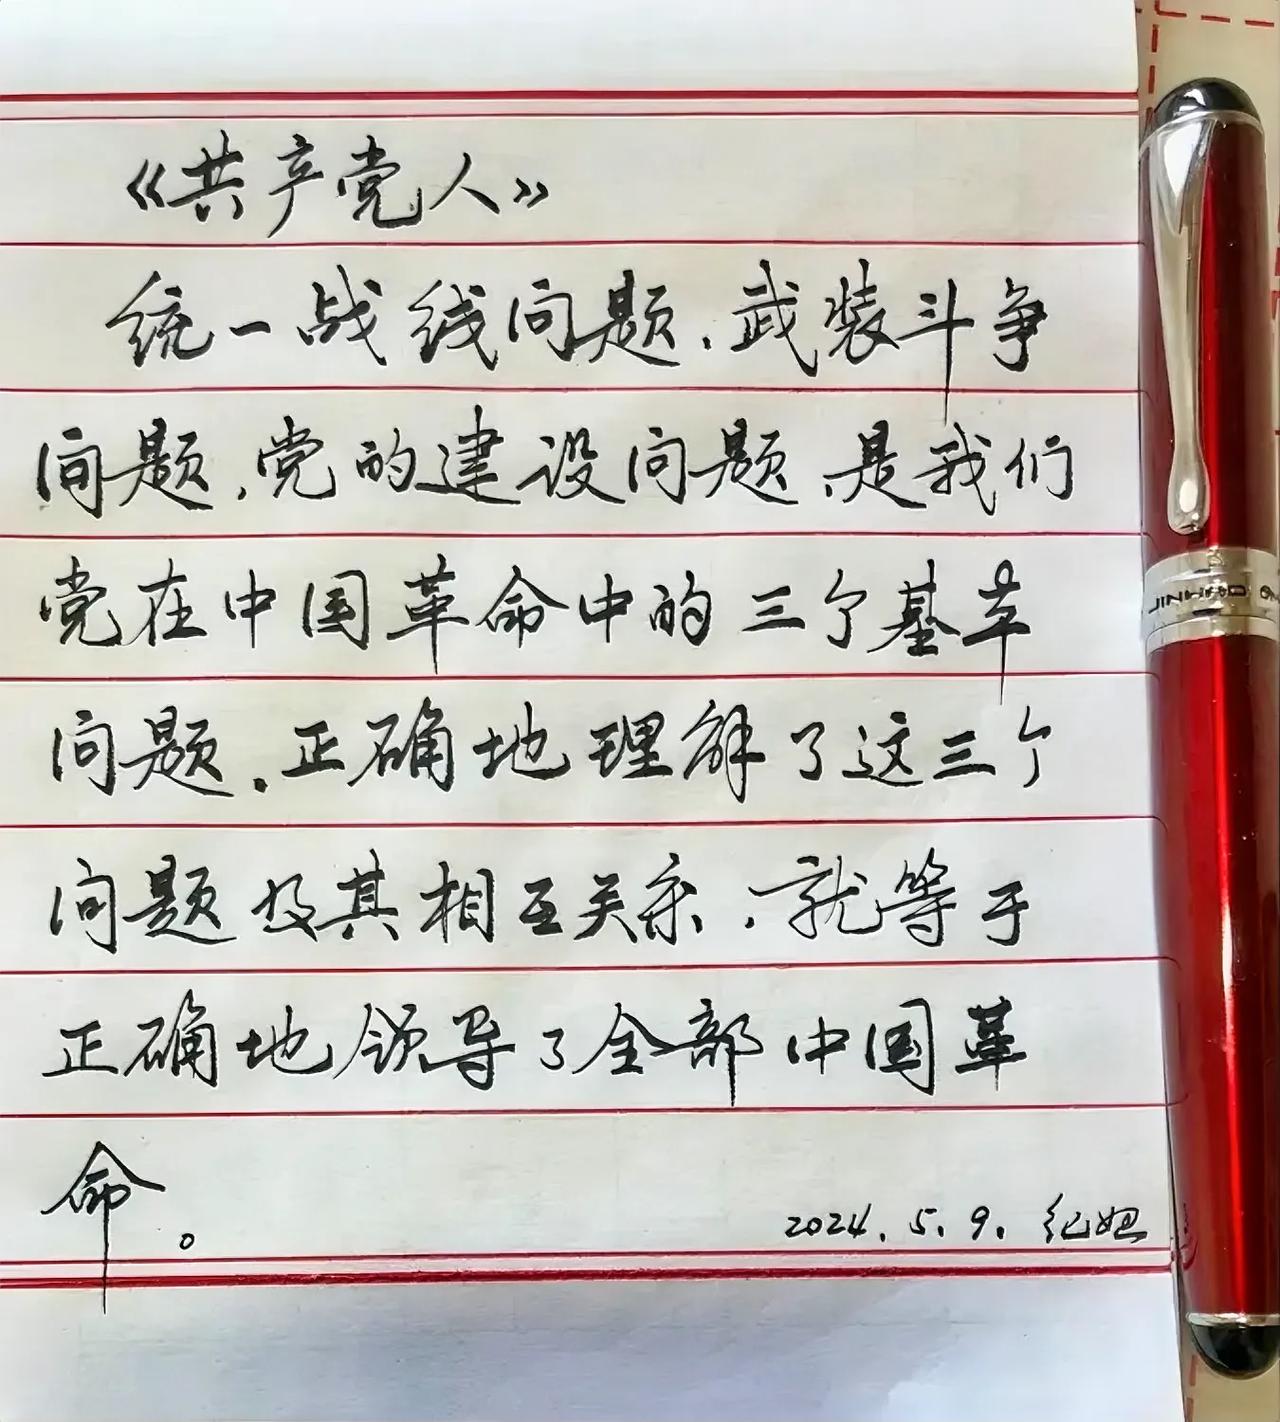 《共产党人》
统一战线问题，武装斗争
问题，党的建设问题，是我们
党在中国革命中的三个基本
问题。正确地理解了这三个
问题及其相互关系，就等于
正确地领导了全部中国革
命。
2024.5.9.
JINHAO